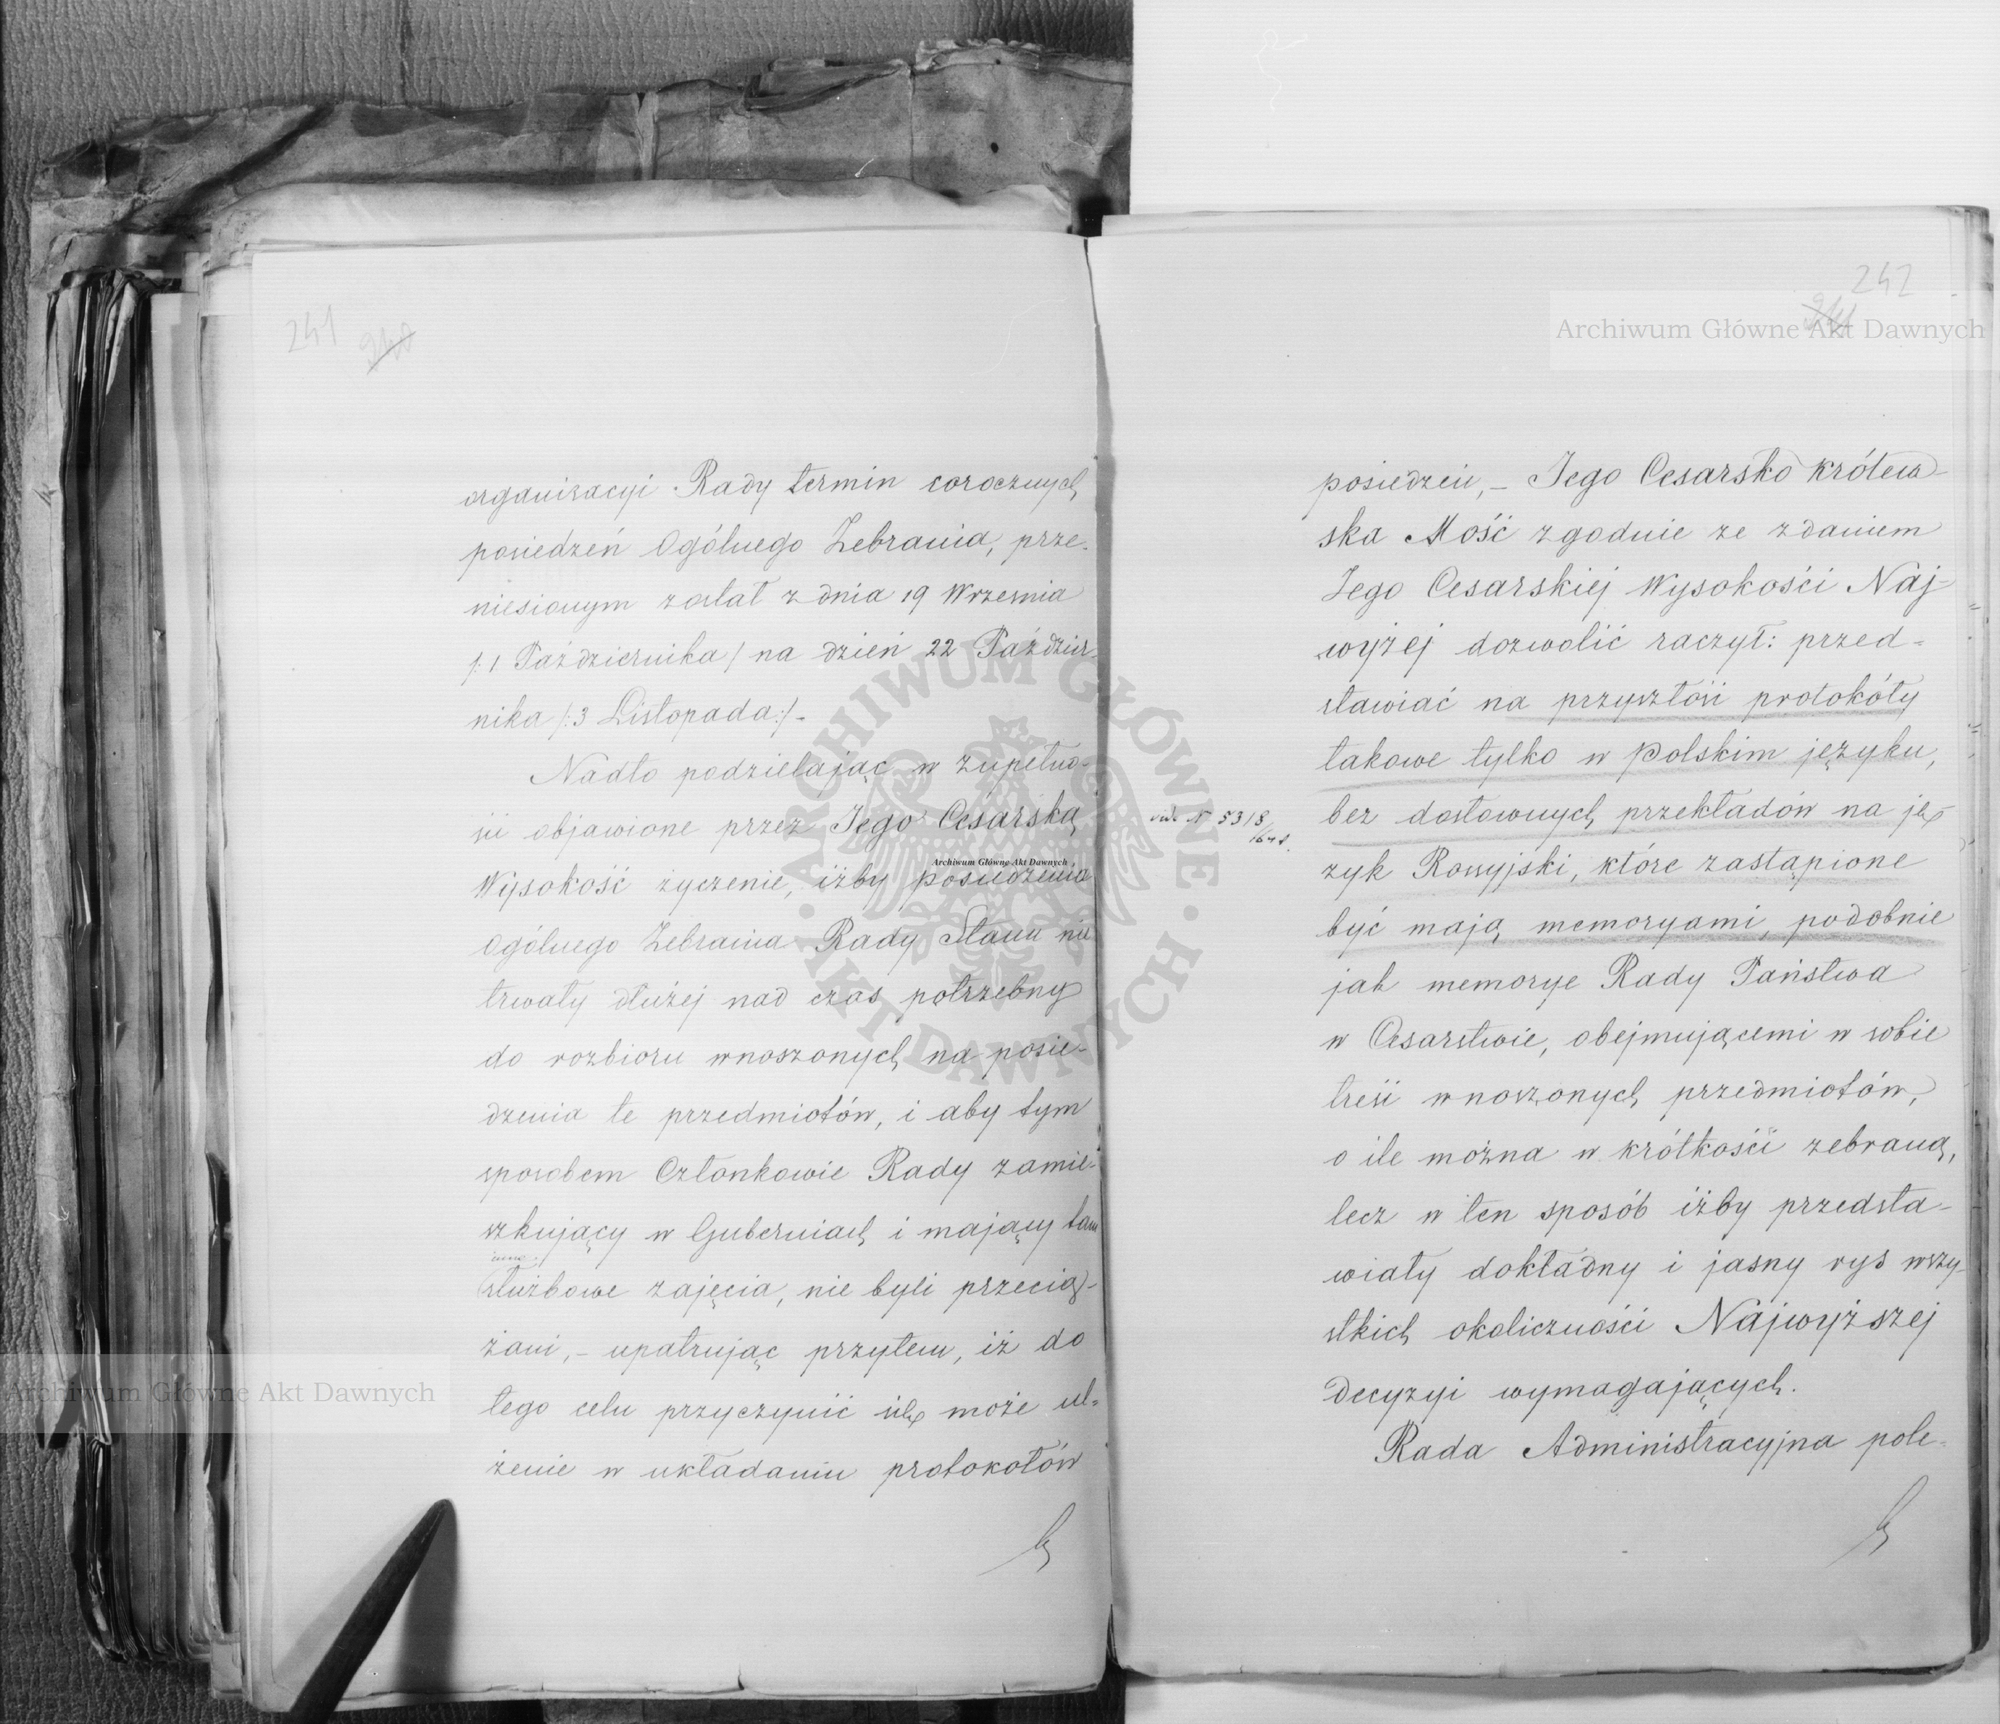 241 240
organizacyi Rady termin corocznych
posiedzeń Ogólnego Zebrania, prze-
niesionym został z dnia 19 Września
/:1 Października/ na dzień 22 Paździer-
nika /:3 Listopada:/-
Nadto podzielając w zupełno-
ści objawione przez Jego Cesarską
Wysokość życzenie, iżby posiedzenia
Ogólnego Zebrania Rady Stanu nie
trwały dłużej nad czas potrzebny
do rozbioru wnoszonych na posie-
dzenia te przedmiotów, i aby tym
sposobem Członkowie Rady zamie-
szkujący w Guberniach i mający tam
inne
służbowe zajęcia, nie byli przecią-
żani,- upatrując przytem, iż do
tego celu przyczynić się może ul-
żenie w układaniu protokołów
242
241
posiedzeń,- Jego Cesarsko Królew-
ska Mość zgodnie ze zdaniem
Jego Cesarskiej Wysokości Naj-
wyżej dozwolić raczył: przed-
stawiać na przyszłość protokóły
takowe tylko w polskim języku,
bez dosłownych przekładów na ję-
zyk Rossyjski, które zastąpione
być mają memoryami, podobnie
jak memorye Rady Państwa
w Cesarstwie, obejmującemi w sobie
treść wnoszonych przedmiotów,
o ile można w krótkości zebraną,
lecz w ten sposób iżby przedsta-
wiały dokładny i jasny rys wszy-
stkich okoliczności Najwyższej
Decyzyi wymagających.
Rada Administracyjna pole-
vide N 5318
Archiwum Główne Akt Dawnych
Archiwum Główne Akt Dawnych
Archiwum Główne Akt Dawnych
ARCHIWUM GŁÓWNE
AKT DAWNYCH